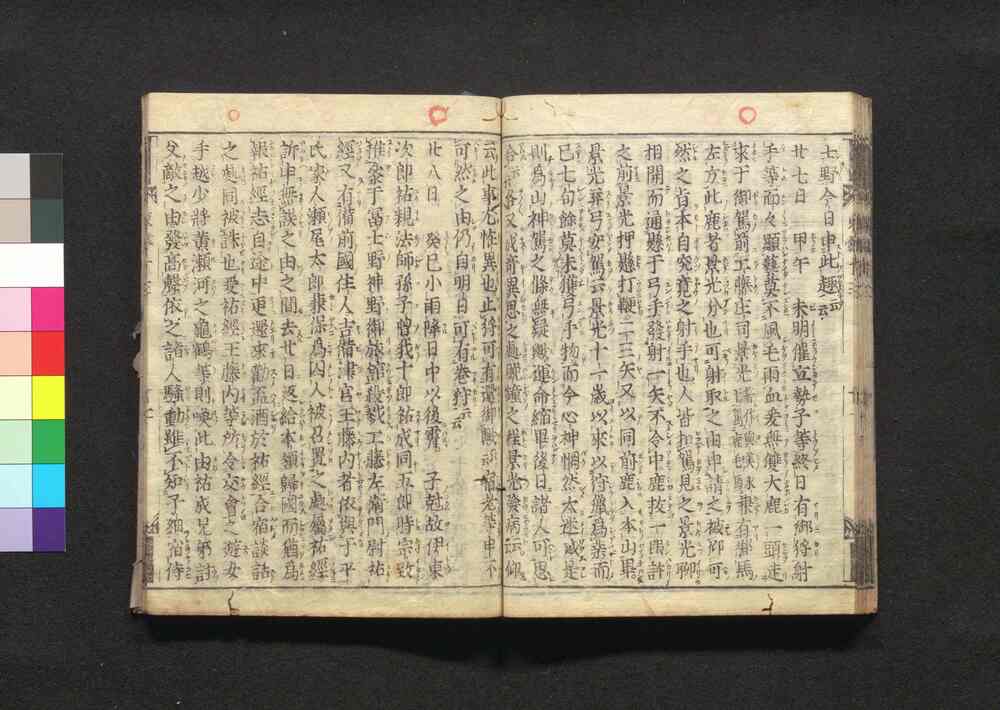 士野今日申此趣云云
廿七日 甲午 未明催立勢子等終日有御狩射
手等面々顕藝莫不風毛雨血爰無雙大鹿一頭走
来于御駕前工藤庄司景光 兼有御馬
左方此鹿者景光分也可射取之由申請之被仰可
然之旨不自究竟之射手也人皆扣駕見之景光聊
相開而通懸于弓手發射一矢不令中鹿抜一段許
之前景光押懸打鞭二三矢又以同前鹿入本山畢
景光弃弓安駕云景光十一歳以来以狩獵為業而
已七旬餘莫未獲弓手物而今心神惘然太迷惑是
則為山神駕之條無疑歟運命縮畢後日諸人可思
合云々各又成奇異思之處晩鐘之程景光發病云云仰
云此事尤恠異也止狩可有還御歟宿老等申不
可然之由仍自明日可有巻狩云云
廿八日 癸巳小雨降日中以後霽 子尅故伊東
次郎祐親法師孫子曽我十郎祐成同五郎時宗致
推参于冨士野神野御旅館殺戮工藤左衛門尉祐
經又有備前國住人吉備津宮王藤内者依與于平
氏家人瀬尾太郎兼保為囚人被召置之處属祐經
訴申無誤之由之間去廿日返給本領歸國而猶為
報祐經志自途中更還来勸盃酒於祐經合宿談話
之處同被誅也爰祐經王藤内等所令交會之遊女
手越少將黄瀬河之龜鶴等則喚此由祐成兄弟討
父敵之由發高聲依之諸人騒動雖不知子細宿侍